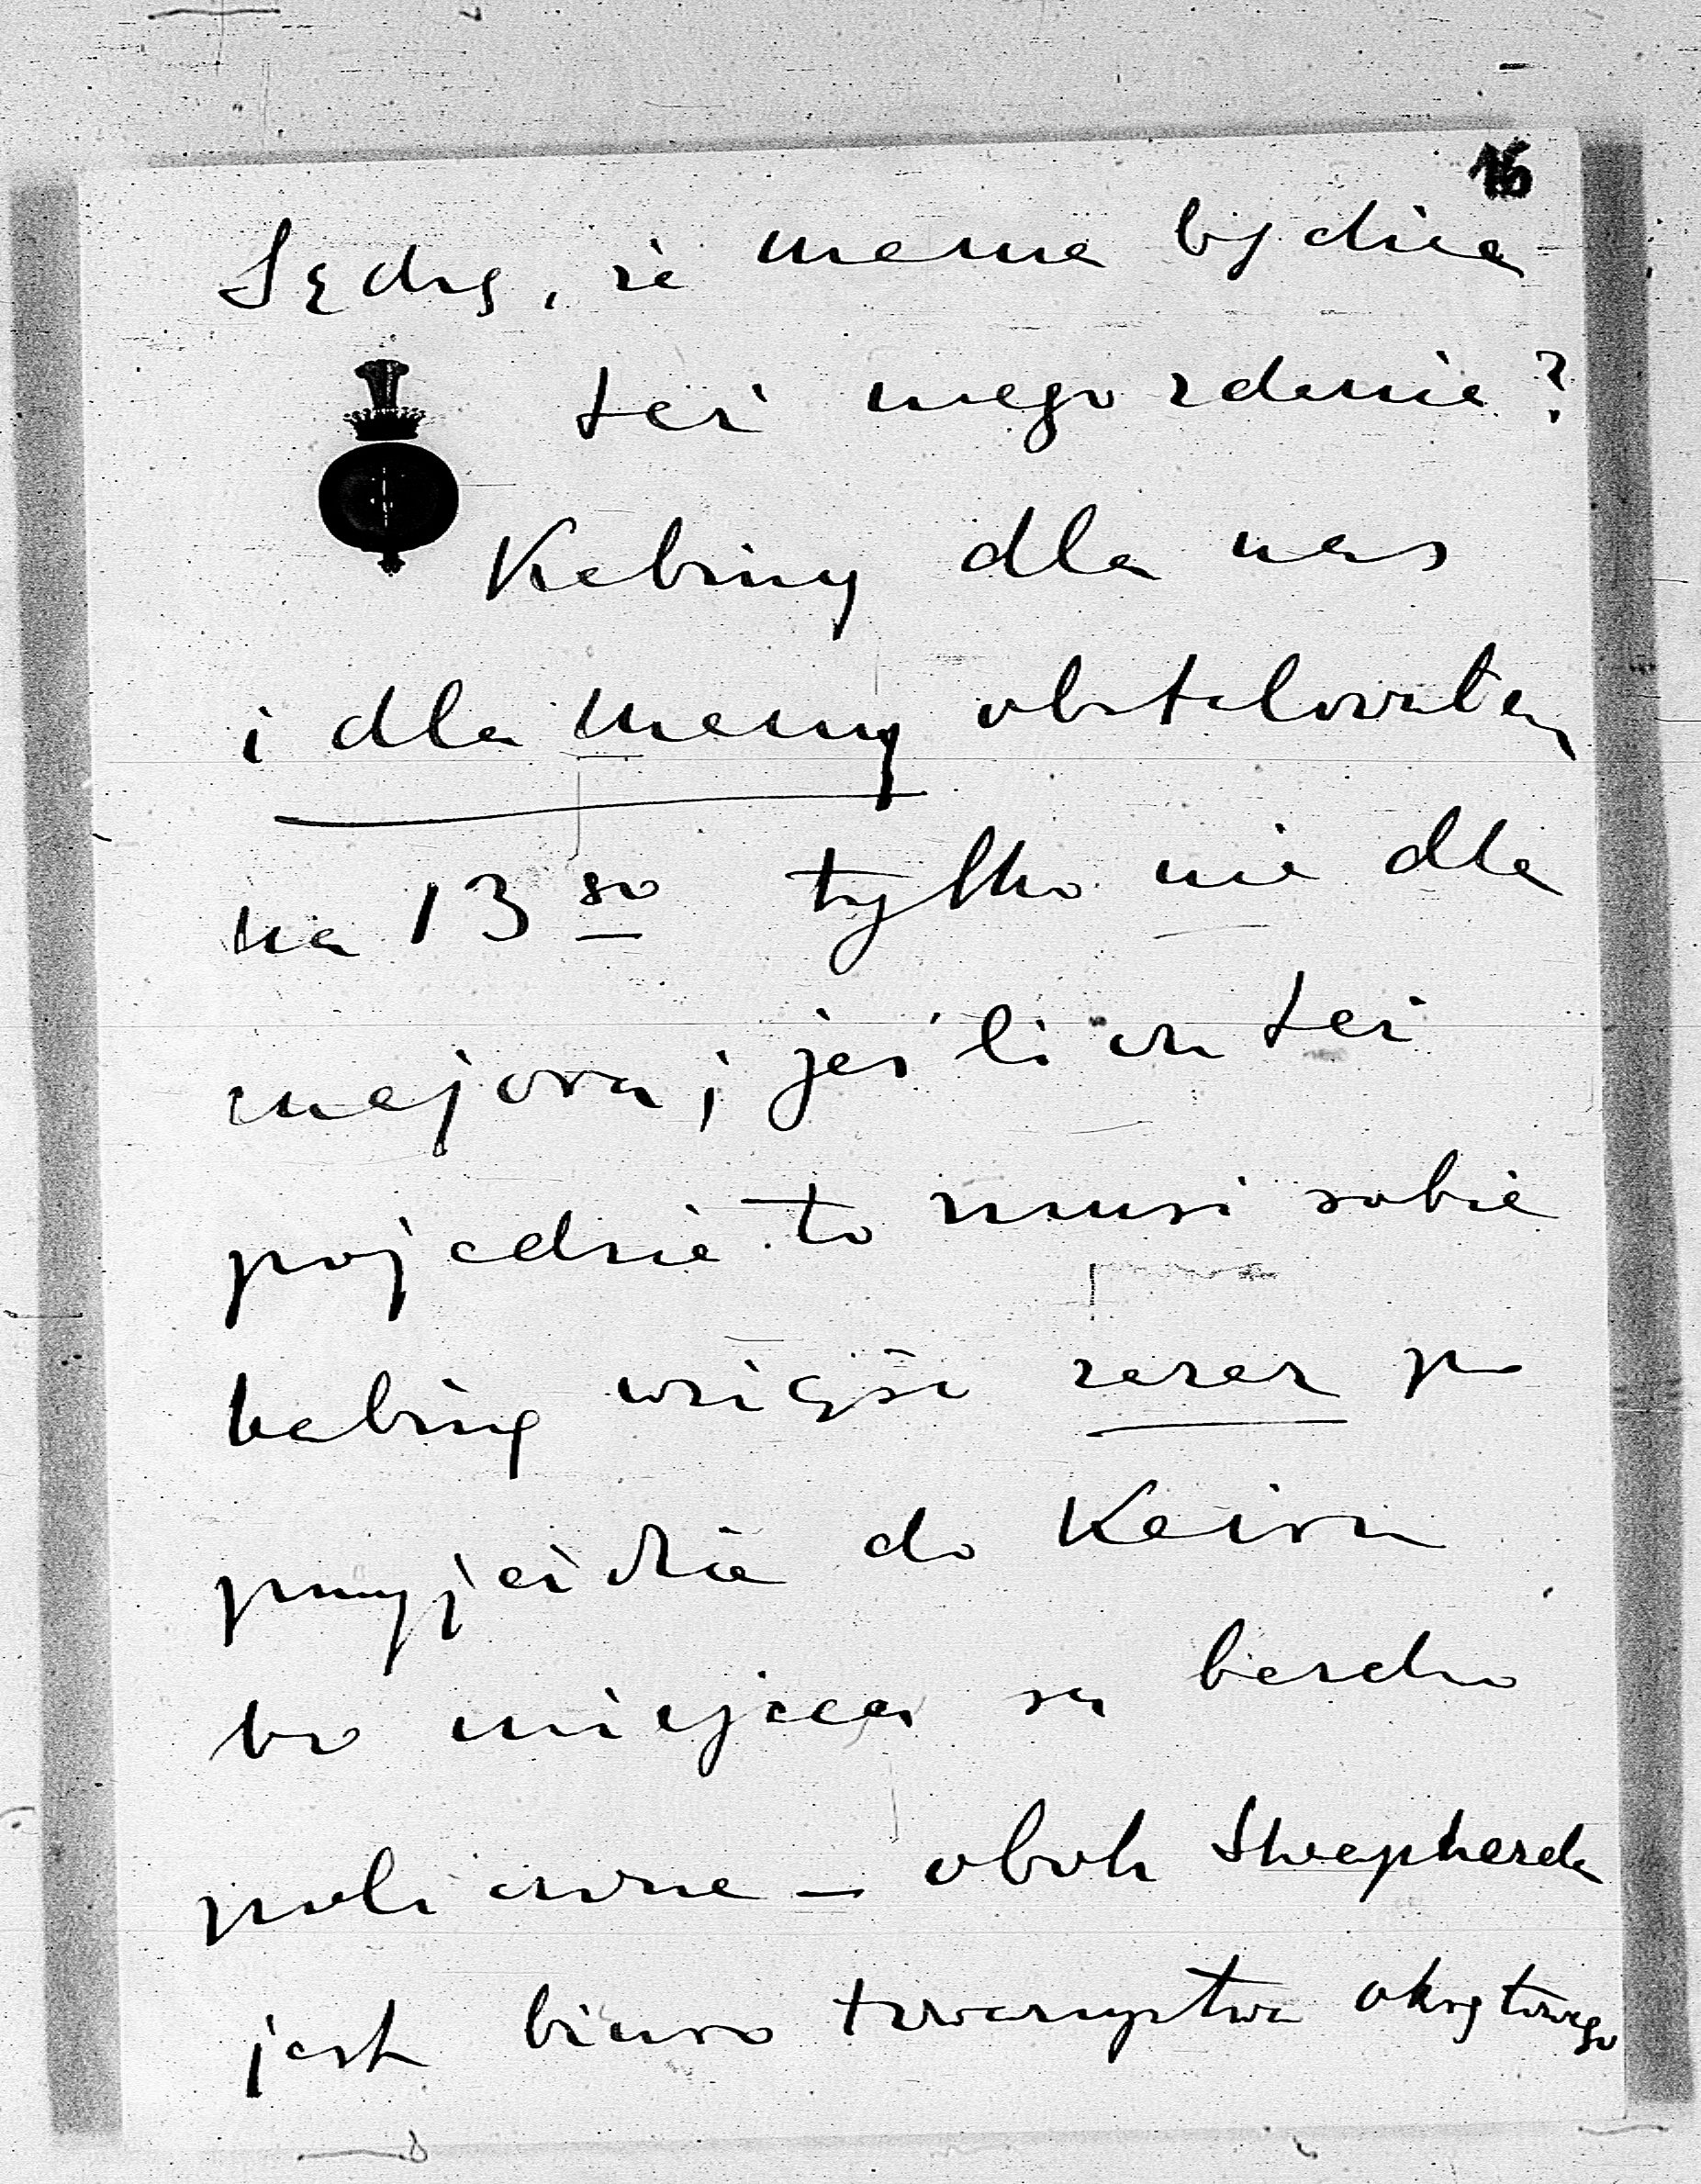 16
Sądzę, że mama będzie
też mego zdania?
Kabiny dla nas
i dla mamy obstalowałem
na 13go tylko nie dla
majora; jeśli on też
pojedzie to musi sobie
kabinę wziąść zaraz po
przyjeździe do Kairu
bo miejsca są bardzo
policzone — obok Sheapherda
jest biuro towarzystwa okrętowego